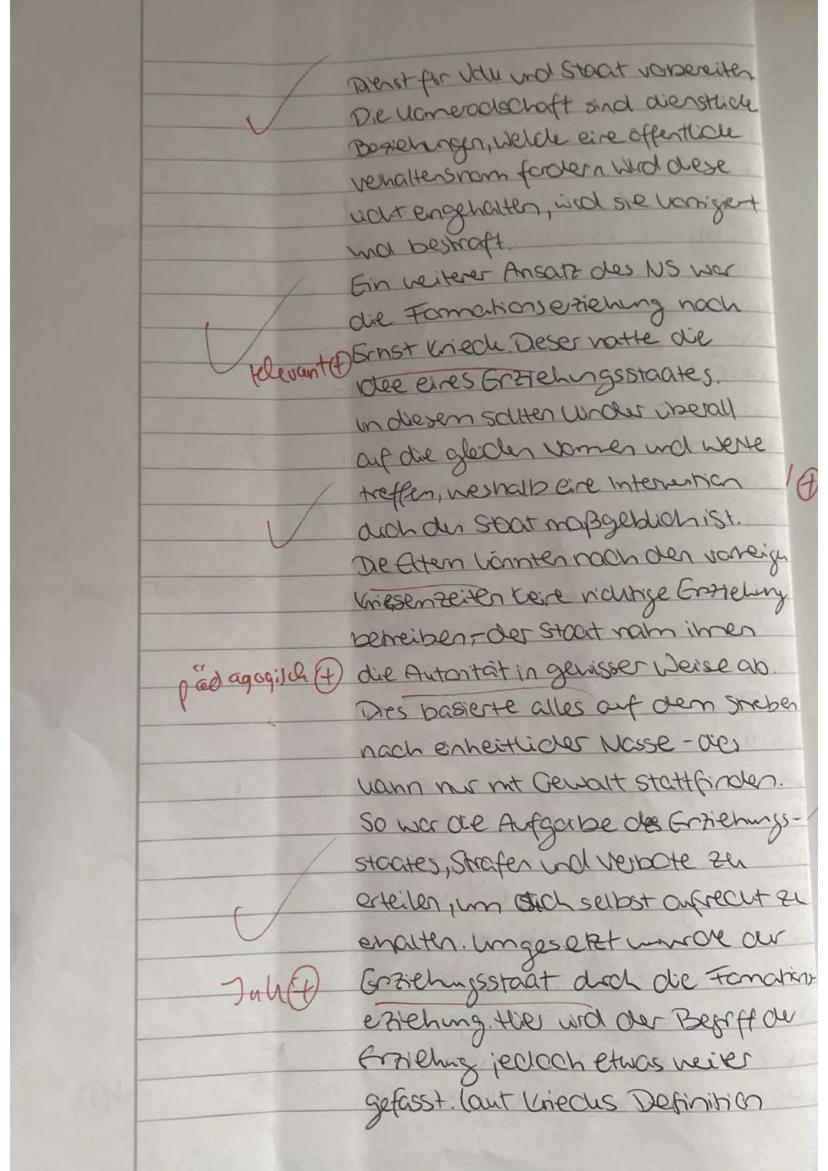 Dienst für Volk und Staat vorbereiten
Die Kameradschaft sind dienstliche
Beziehungen, welche eine öffentliche
verhaltensnorm fordern wird diese
nicht eingehalten, wird sie korrigiert
und bestraft.
Ein weiterer Ansatz des NS war
die Formationserziehung nach
relevant + Ernst Krieck. Dieser hatte die
Idee eines Erziehungsstaates.
In diesem sollten Kinder überall
auf die gleichen Normen und Werte
treffen, weshalb eine Intervention
! +
durch den Staat maßgeblich ist.
Die Eltern könnten nach den
Kriesenzeiten keine richtige Erziehung
betreiben, - der Staat nahm ihnen
pädagogisch + die Autorität in gewisser Weise ab.
Dies basierte alles auf dem streben
nach einheitlicher Masse - dies
kann nur mit Gewalt stattfinden.
So war die Aufgabe des Erziehungs-
staates, Strafen und Verbote zu
erteilen, um sich selbst aufrecht zu
erhalten. Umgesetzt wurde der
Inh + Erziehungsstaat durch die Formations
erziehung. Hier wird der Begriff der
Erziehung jedoch etwas weiter
gefasst. Laut Kriecks Definition